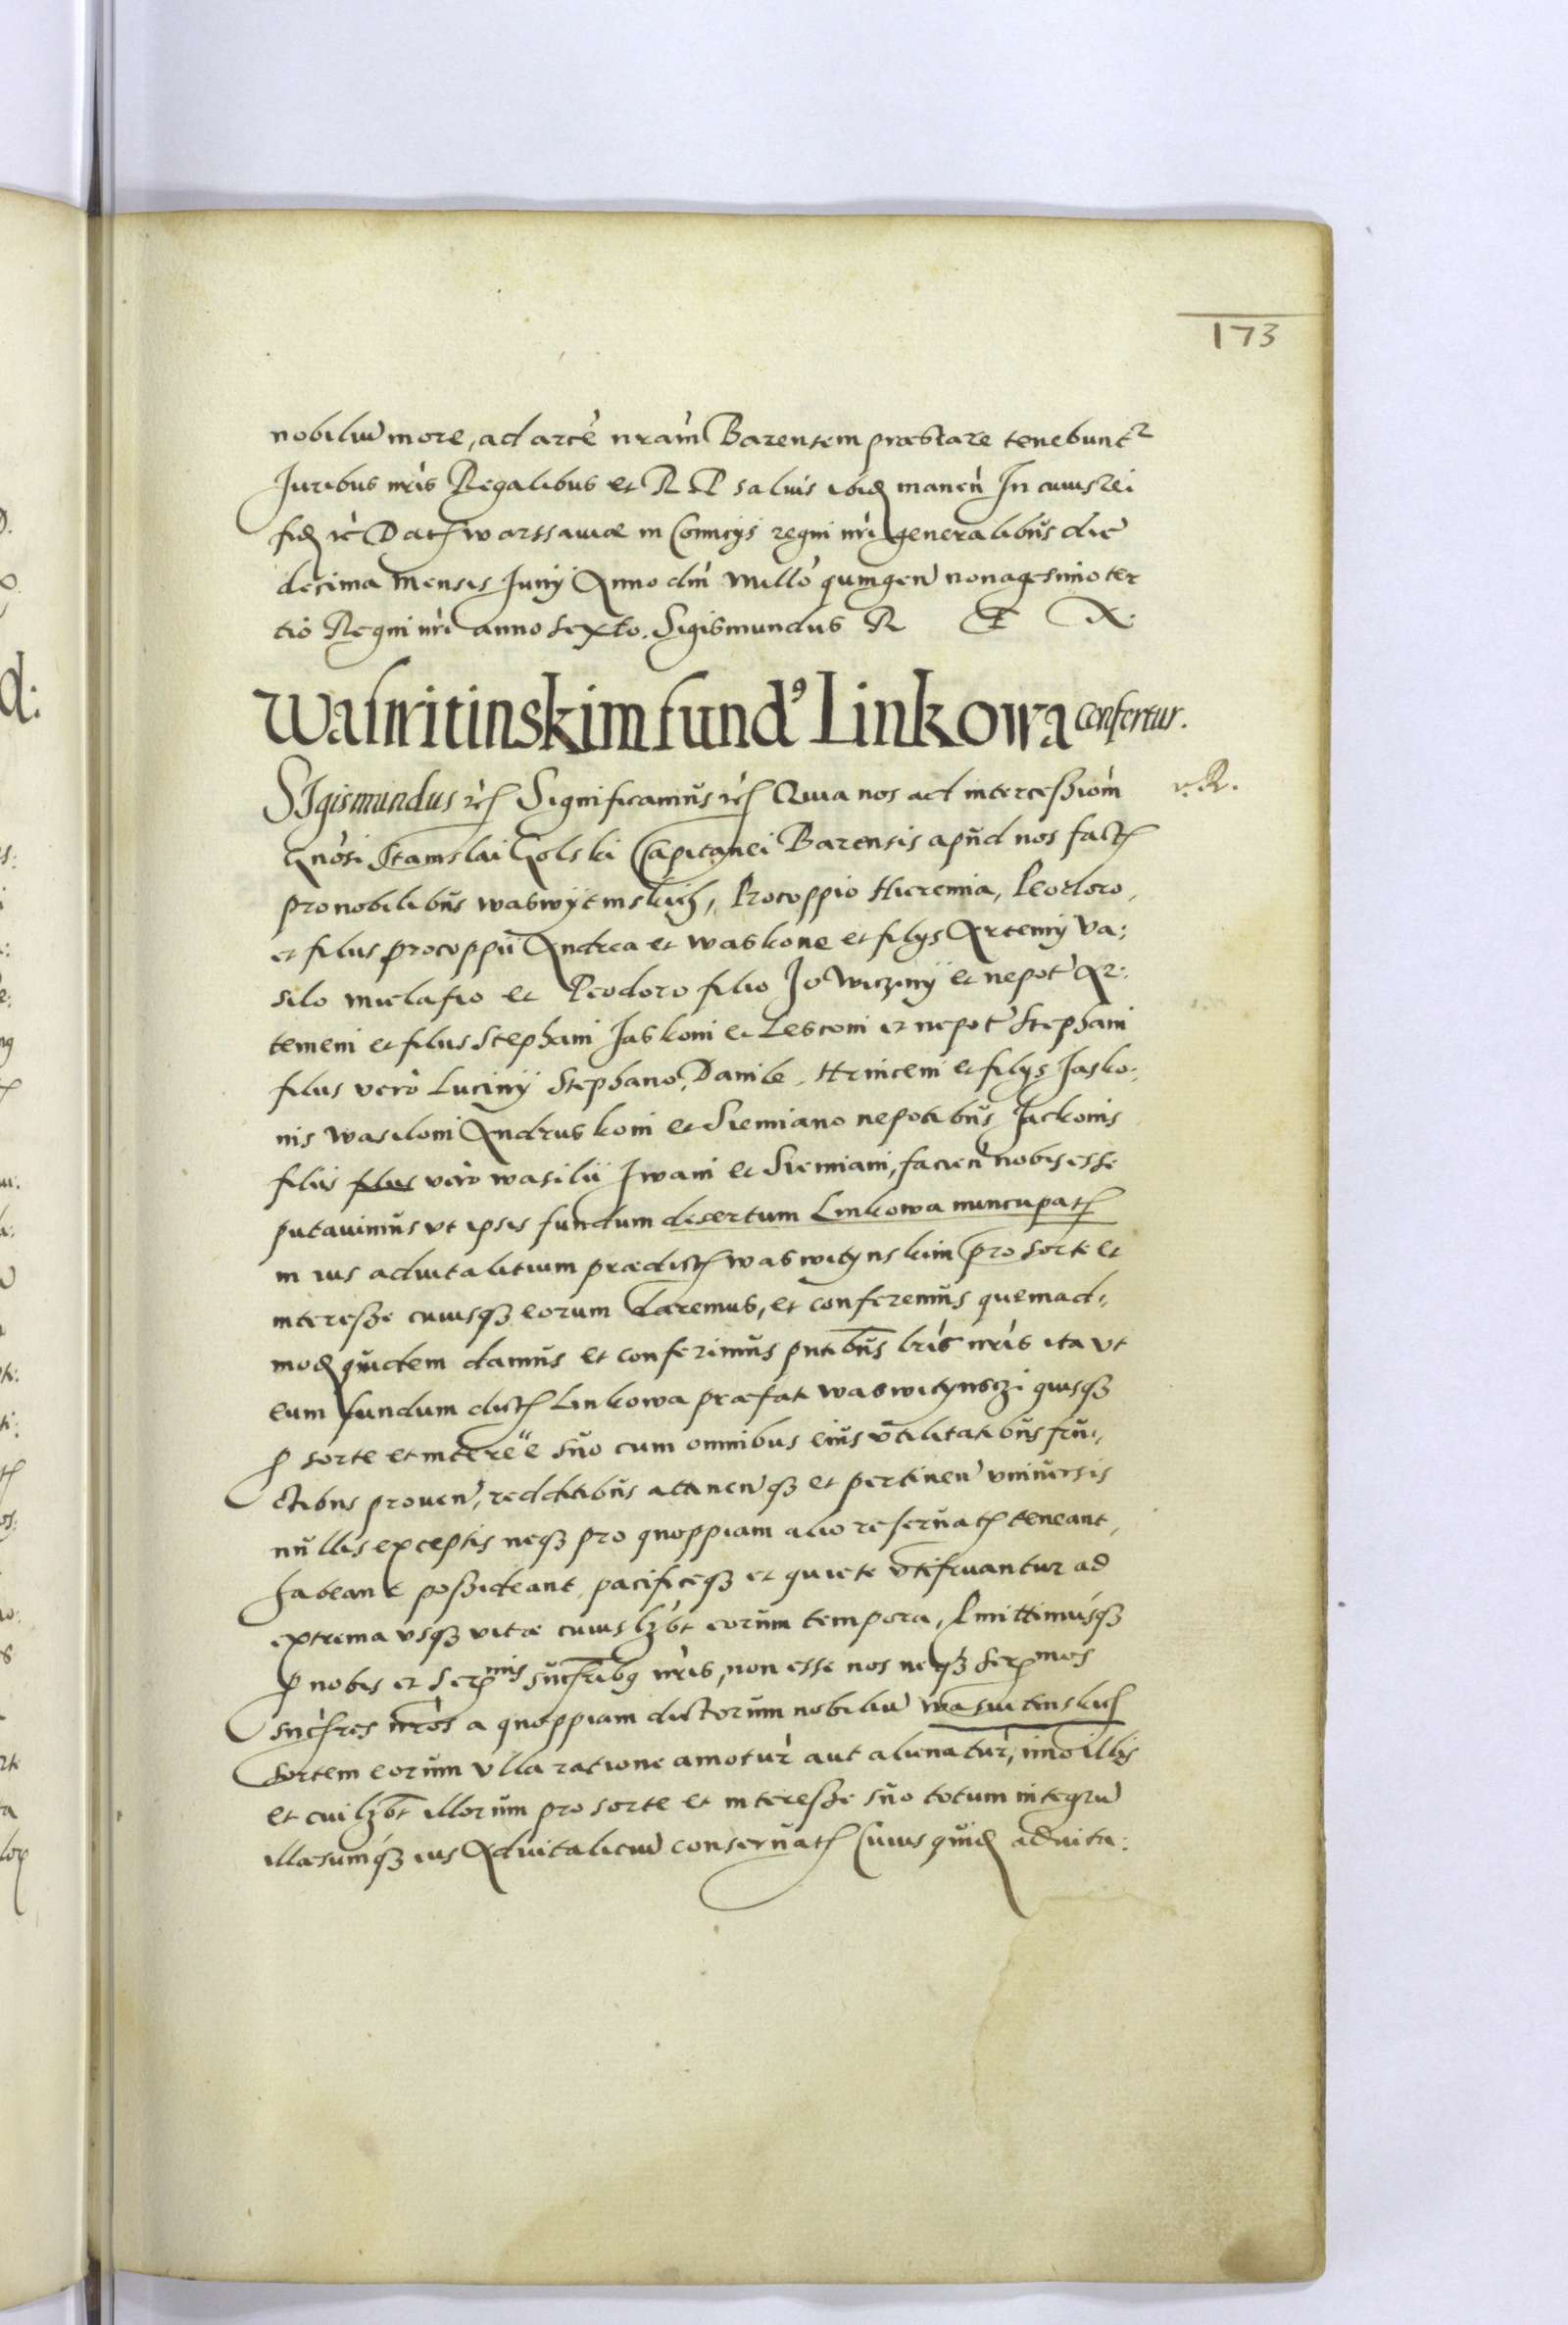 173
nobiliũ more, ad arcẽ nrãm Barensem præstare tenebunt2
Juribus nris Regalibus et R P saluis ibid manen̄ In cuius rei
fid rẽ Dat Warssauiæ in Comicÿs regni nrī generalibus die
decima mensis Junÿ Anno dnī millo quingen̄ nonagesimo ter
tio Regni nrī anno sexto. Sigismundus R
Waswitinskim fund9 Linkowa Confertur.
SIgismundus rc̃ Significamus rc̃ Quia nos ad intercessiom̃ v. R.
Gnosi Stanislai Golski Capitanei Barensis apud nos fact
pro nobilibus waswytinskich, Procoppio Hieremia, Peodoro,
et filiis procoppii Andrea et waskone et filÿs Artemÿ Va:
silo mielafio et Peodoro filio Jowiczinÿ et nepot Ar:
temeni et filiis Stephani Jaskoni et Lesconi et nepot Stephani
filiis verò Lucinÿ Stephano, Danile, Hrinceni et filÿs Jasko:
nis wasiloni Andruskoni et Siemiano nepotibus Jackonis
filiis filiis vero wasilii Jwani et Siemiani, facien̄ nobis esse
putauimus vt ipsis fundum desertum Linkowa nuncupat
in ius aduitalitium prædict waswitynskim pro sorte et
interesse cuiusq₃ eorum daremus, et conferemus quemad:
mod quidem damus et conferimus pntibus lrīs nrīs ita vt
eum fundum dict Linkowa præfati waswitynsczi quisq₃
p sorte et intereẽe suo cum omnibus eius vtilitatibus fru:
ctibus prouen̄, redditibus attinen̄q₃ et pertinen̄ vniuersis
nullis exceptis neq₃ pro quoppiam alio reseruat teneant,
habeant possideant, pacificeq₃ et quiete vtifruantur ad
extrema vsq₃ vitæ cuiuslȝbt eorum tempora, Pmittimusq₃
p nobis et Sermis succribg nris, non esse nos neq₃ Sermos
succres nros a quoppiam dictorum nobiliũ wasuitinskich
sortem eorum vlla ratione amotur aut alienatur, imo illis
et cuilȝbt illorum pro sorte et interesse suo totum integrũ
illæsumq₃ ius Aduitalitiũ conseruat Cuius quid aduita: